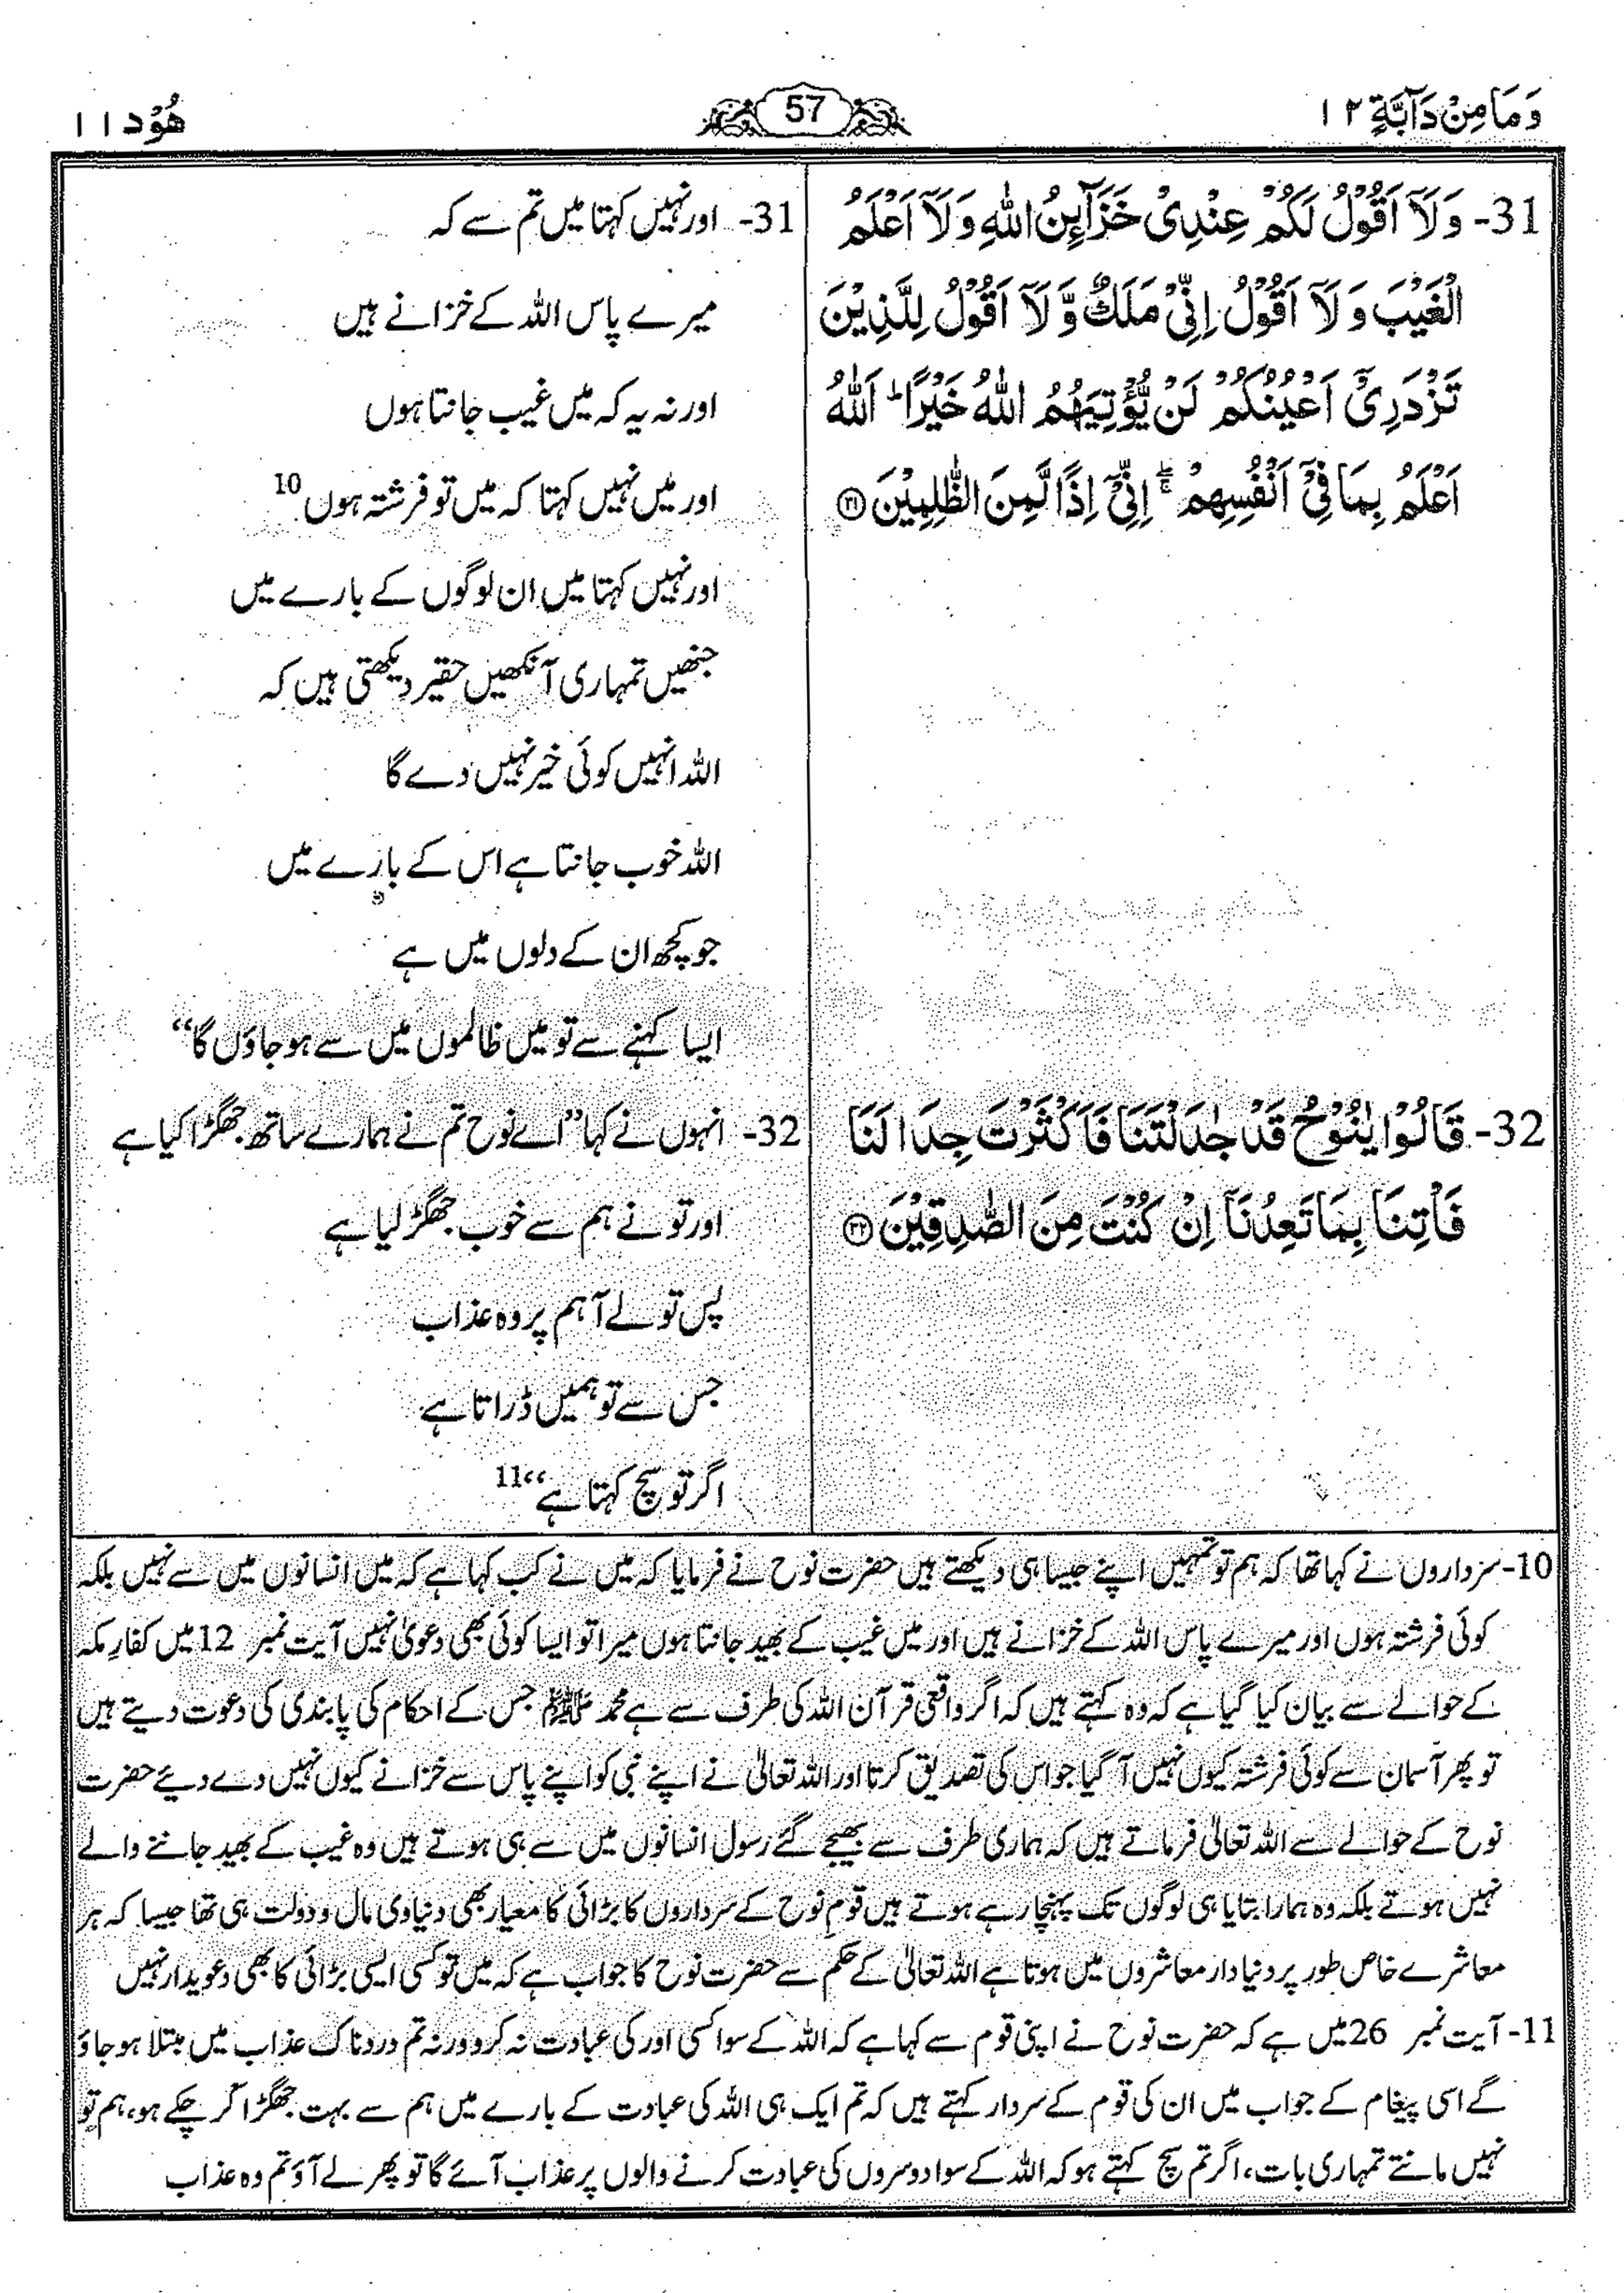 وَمَا مِنْ دَآبَّةٍ ۱۲
57
هُوْد ۱۱
31- وَلَآ اَقُوْلُ لَكُمْ عِنْدِىْ خَزَآئِنُ اللّٰهِ وَلَآ اَعْلَمُ
الْغَيْبَ وَلَآ اَقُوْلُ اِنِّىْ مَلَكٌ وَّلَآ اَقُوْلُ لِلَّذِيْنَ
تَزْدَرِىْٓ اَعْيُنُكُمْ لَنْ يُّؤْتِيَهُمُ اللّٰهُ خَيْرًا ؕ اَللّٰهُ
اَعْلَمُ بِمَا فِىْٓ اَنْفُسِهِمْ ۖۚ اِنِّىْٓ اِذًا لَّمِنَ الظّٰلِمِيْنَ ۝۳۱
31- اور نہیں کہتا میں تم سے کہ
میرے پاس اللہ کے خزانے ہیں
اور نہ یہ کہ میں غیب جانتا ہوں
اور میں نہیں کہتا کہ میں تو فرشتہ ہوں 10
اور نہیں کہتا میں ان لوگوں کے بارے میں
جنھیں تمہاری آنکھیں حقیر دیکھتی ہیں کہ
اللہ انہیں کوئی خیر نہیں دے گا
اللہ خوب جانتا ہے اس کے بارے میں
جو کچھ ان کے دلوں میں ہے
ایسا کہنے سے تو میں ظالموں میں سے ہو جاؤں گا“
32- قَالُوْا يٰنُوْحُ قَدْ جٰدَلْتَنَا فَاَكْثَرْتَ جِدَالَنَا
فَاْتِنَا بِمَا تَعِدُنَآ اِنْ كُنْتَ مِنَ الصّٰدِقِيْنَ ۝۳۲
32- انہوں نے کہا ”اے نوح تم نے ہمارے ساتھ جھگڑا کیا ہے
اور تو نے ہم سے خوب جھگڑ لیا ہے
پس تو لے آ ہم پر وہ عذاب
جس سے تو ہمیں ڈراتا ہے
اگر تو سچ کہتا ہے“ 11
10- سرداروں نے کہا تھا کہ ہم تو تمہیں اپنے جیسا ہی دیکھتے ہیں حضرت نوح نے فرمایا کہ میں نے کب کہا ہے کہ میں انسانوں میں سے نہیں بلکہ
کوئی فرشتہ ہوں اور میرے پاس اللہ کے خزانے ہیں اور میں غیب کے بھید جانتا ہوں میرا تو ایسا کوئی بھی دعویٰ نہیں آیت نمبر 12 میں کفارِ مکہ
کے حوالے سے بیان کیا گیا ہے کہ وہ کہتے ہیں کہ اگر واقعی قرآن اللہ کی طرف سے ہے محمد ﷺ جس کے احکام کی پابندی کی دعوت دیتے ہیں
تو پھر آسمان سے کوئی فرشتہ کیوں نہیں آ گیا جو اس کی تصدیق کرتا اور اللہ تعالیٰ نے اپنے نبی کو اپنے پاس سے خزانے کیوں نہیں دے دیئے حضرت
نوح کے حوالے سے اللہ تعالیٰ فرماتے ہیں کہ ہماری طرف سے بھیجے گئے رسول انسانوں میں سے ہی ہوتے ہیں وہ غیب کے بھید جاننے والے
نہیں ہوتے بلکہ وہ ہمارا بتایا ہی لوگوں تک پہنچا رہے ہوتے ہیں قومِ نوح کے سرداروں کا بڑائی کا معیار بھی دنیاوی مال و دولت ہی تھا جیسا کہ ہر
معاشرے خاص طور پر دنیا دار معاشروں میں ہوتا ہے اللہ تعالیٰ کے حکم سے حضرت نوح کا جواب ہے کہ میں تو کسی ایسی بڑائی کا بھی دعویدار نہیں
11- آیت نمبر 26 میں ہے کہ حضرت نوح نے اپنی قوم سے کہا ہے کہ اللہ کے سوا کسی اور کی عبادت نہ کرو ورنہ تم دردناک عذاب میں مبتلا ہو جاؤ
گے اسی پیغام کے جواب میں ان کی قوم کے سردار کہتے ہیں کہ تم ایک ہی اللہ کی عبادت کے بارے میں ہم سے بہت جھگڑا کر چکے ہو، ہم تو
نہیں مانتے تمہاری بات، اگر تم سچ کہتے ہو کہ اللہ کے سوا دوسروں کی عبادت کرنے والوں پر عذاب آئے گا تو پھر لے آؤ تم وہ عذاب